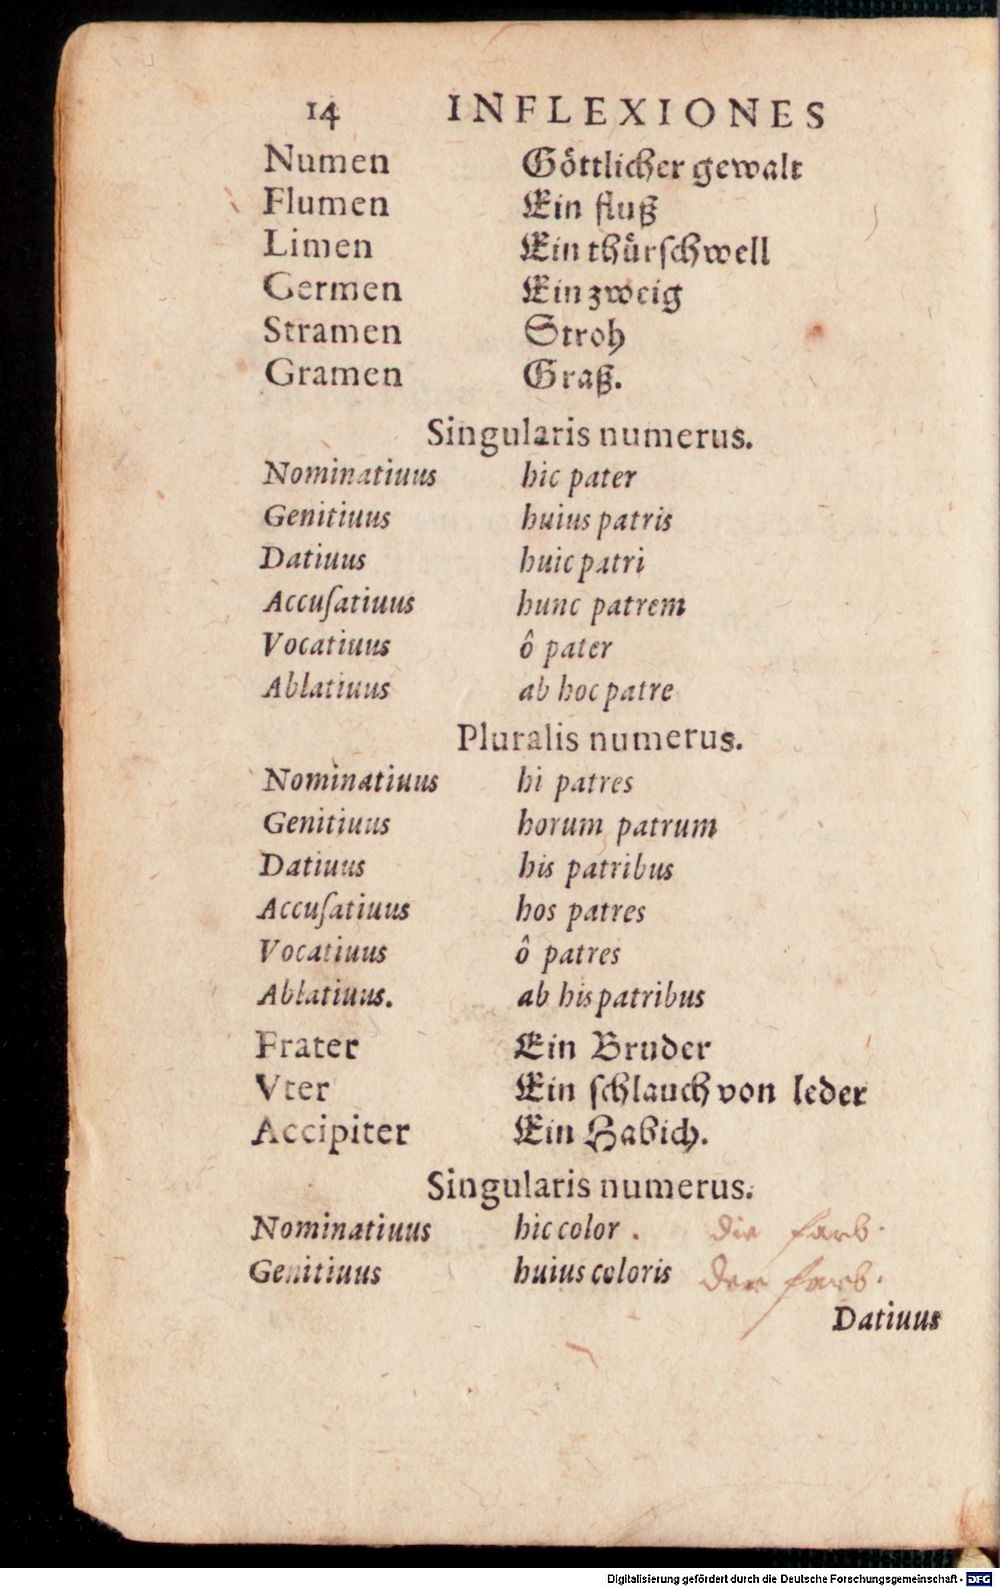 14 INFLEXIONES
Numen Göttlicher gewalt
Flumen Ein fluß
Limen Ein thürſchwell
Germen Ein zweig
Stramen Stroh
Gramen Graß.
Singularis numerus.
Nominatiuus hic pater
Genitiuus huius patris
Datiuus huic patri
Accuſatiuus hunc patrem
Vocatiuus ô pater
Ablatiuus ab hoc patre
Pluralis numerus.
Nominatiuus hi patres
Genitiuus horum patrum
Datiuus his patribus
Accuſatiuus hos patres
Vocatiuus ô patres
Ablatiuus. ab his patribus
Frater Ein Bruder
Vter Ein ſchlauch von leder
Accipiter Ein Habich.
Singularis numerus.
Nominatiuus hic color . die farb.
Genitiuus huius coloris der farb.
Datiuus
Digitalisierung gefördert durch die Deutsche Forschungsgemeinschaft - DFG